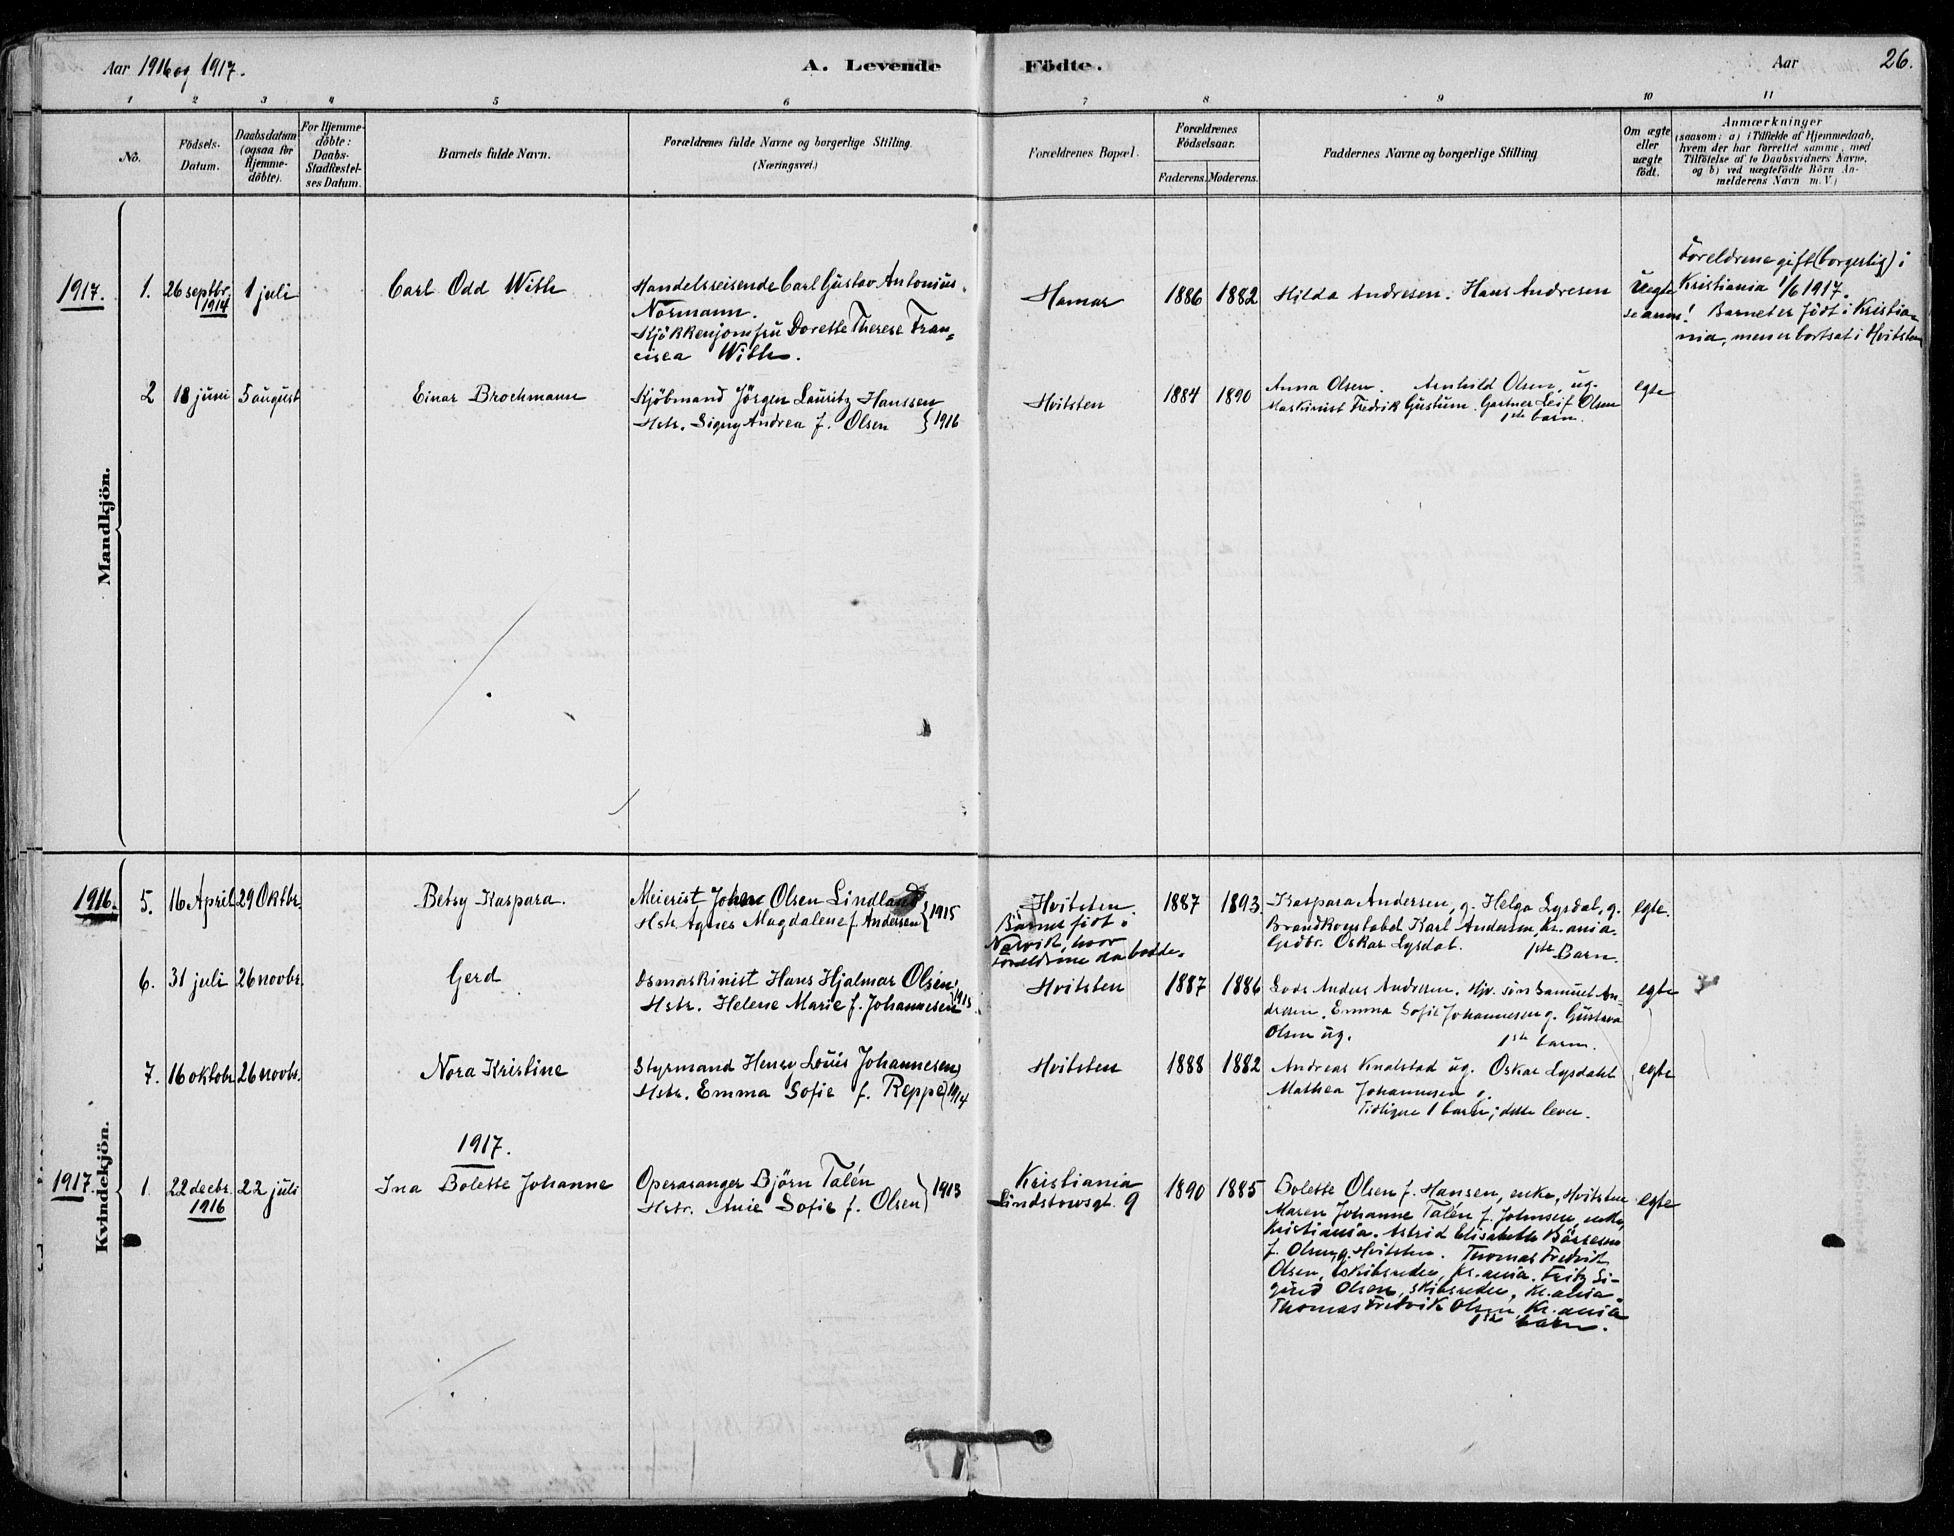 Aar 1916 og 1917.
A. Levende Födte.
Aar 26.
1 2 3 4 5 6 7 8 9 10 11
No.
Födsels-Datum.
Daabsdatum (ogsaa for Hjemme-döbte).
For Hjemme-döbte: Daabs-Stadfæstel-ses Datum.
Barnets fulde Navn.
Forældrenes fulde Navne og borgerlige Stilling.
(Næringsvei.)
Forældrenes Bopæl.
Forældrenes Födselsaar.
Faderens. Moderens.
Faddernes Navne og borgerlige Stilling
Om ægte eller uægte födt.
Anmærkninger
(saasom: a) i Tilfælde af Hjemmedaab,
hvem der har forrettet samme, med
Tilföielse af to Daabsvidners Navne,
og b) ved uægtefödte Börn An-
melderens Navn m. V.)
Mandkjön.
1917. 1. 26 septbr. 1914 1 juli
Carl Odd With
Handelsreisende Carl Gustav Antonius
Normann.
Kjökkenjomfru Dorette Therese Fran-
cisca With.
Hamar 1886 1882
Hilda Andresen. Hans Andresen
Uegte
se anm!
Foreldrene gift (borgerlig) i
Kristiania 1/6 1917.
Barnet er födt i Kristia-
nia, men er bortsat i Hvitsten
2 18 juni 5 august
Einar Brochmann
Kjöbmand Jörgen Lauritz Hanssen
Hstr. Signy Andrea f. Olsen } 1916
Hvitsten 1884 1890
Anna Olsen. Arnhild Olsen, ug.
Maskinist Fredrik Gustum. Gartner Leif Olsen
1ste barn.
egte
Kvindekjön.
1916. 5. 16 April 29 Oktbr.
Betsy Kaspara.
Meierist Johan Olsen Lindland
Hstr. Agnes Magdalene f. Andersen } 1915
Hvitsten.
Barnet födt i
Narvik, hvor
foreldrene da bodde.
1887 1893.
Kaspara Andersen, g. Helga Lysdal, g.
Brandkonstabel Karl Andersen, Kr.ania.
Grdbr. Oskar Lysdal. 1ste Barn.
egte.
6. 31 juli 26 novbr.
Gerd
Hans Hjalmar Olsen
Hstr. Helene Marie f. Johannesen
Hvitsten 1887 1886
Lods Anders Andresen. Hjv. sön Samuel An-
dresen. Emma Sofie Johannesen g. Gustava
Olsen ug. 1ste barn.
egte
7. 16 oktobr. 26 novbr.
Nora Kristine
Styrmand Henry Louis Johannesen
Hstr. Emma Sofie f. Reppe } 1914
Hvitsten 1888 1882
Andreas Knalstad ug. Oskar Lysdahl
Mathea Johannesen g.
Tidligere 1 barn; dette lever.
egte
1917.
1917 1. 22 decbr. 1916 22 juli
Ina Bolette Johanne
Operasanger Björn Talén
Hstr. Anie Sofie f. Olsen } 1913
Kristiania
Lindstowsgt. 9
1890 1885
Bolette Olsen f. Hansen, enke, Hvitsten
Maren Johanne Talén f. Johnsen, enke,
Kristiania. Astrid Elisabeth Börresen
f. Olsen, g. Hvitsten. Thomas Fredrik
Olsen, skibsreder, Kr.ania. Fritz Si-
gurd Olsen, skibsreder, Kr.ania.
Thomas Fredrik Olsen, Kr.ania
1ste barn.
egte